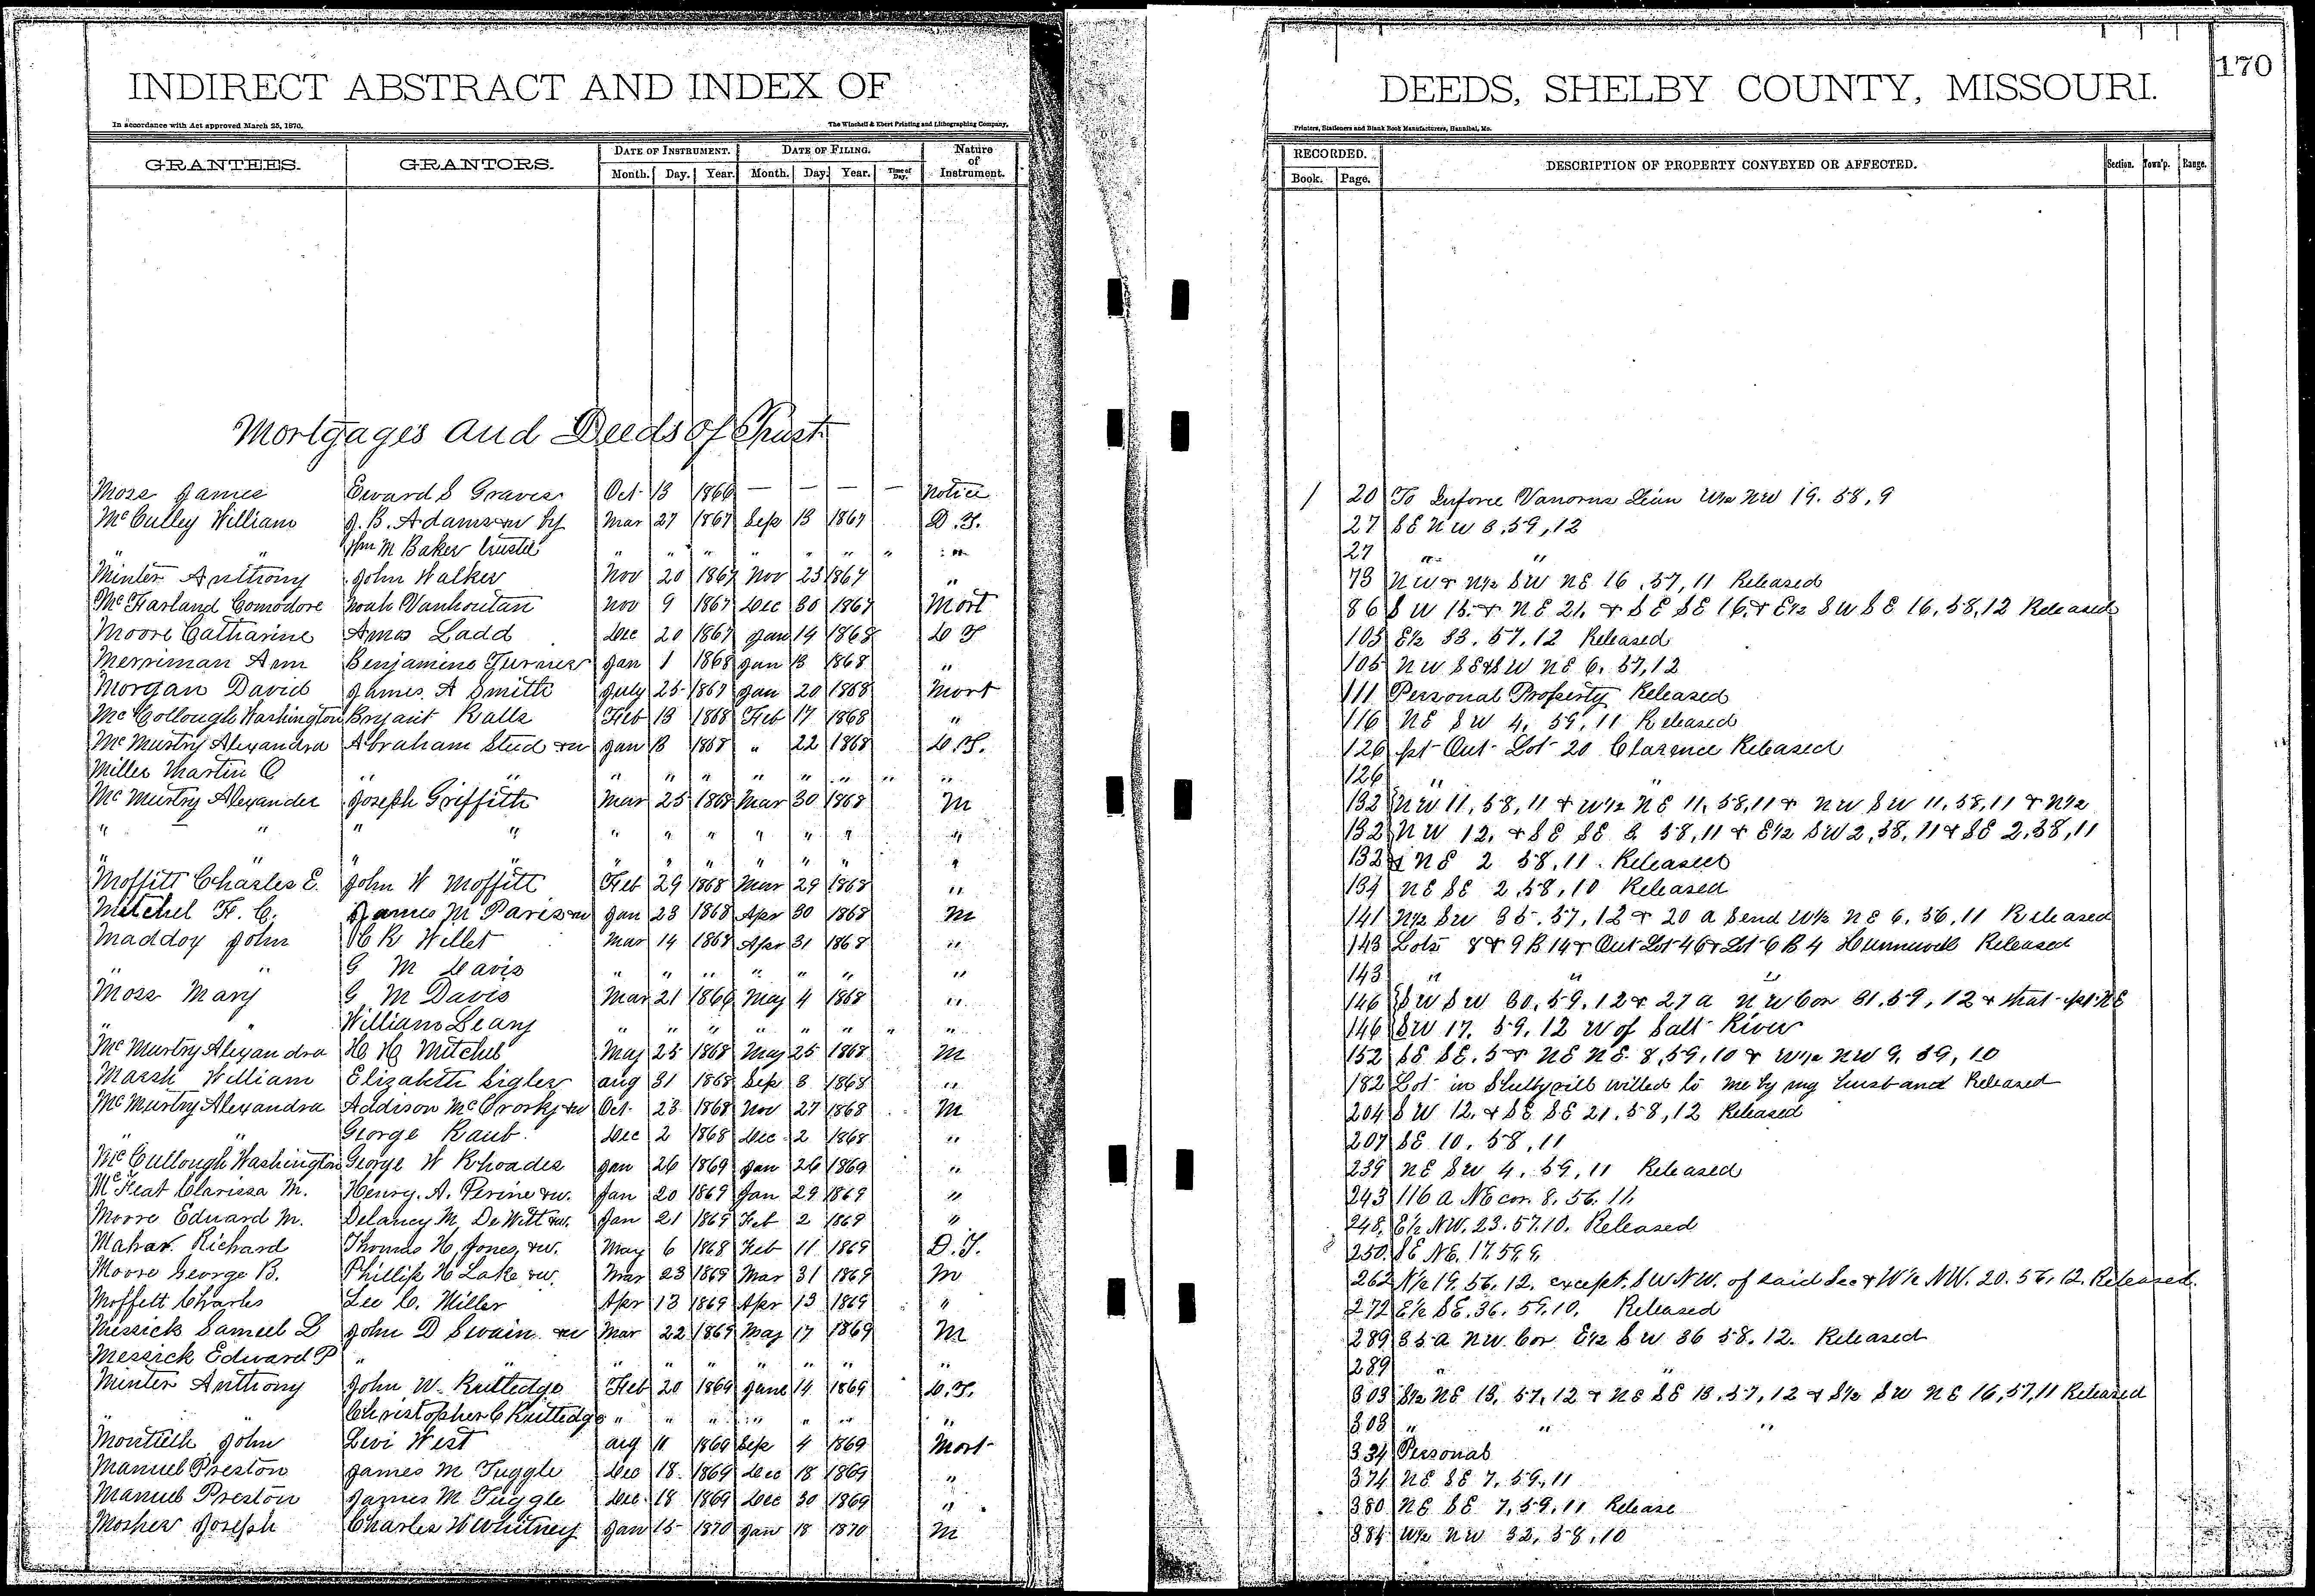 170
INDIRECT ABSTRACT AND INDEX OF DEEDS, SHELBY COUNTY, MISSOURI.
In accordance with Act approved March 25, 1870. The Winchell & Ebert Printing and Lithographing Company, Printers, Stationers and Blank Book Manufacturers, Hannibal, Mo.
GRANTEES. GRANTORS. DATE OF INSTRUMENT. DATE OF FILING. Nature of Instrument. RECORDED. DESCRIPTION OF PROPERTY CONVEYED OR AFFECTED. Section. Town'p. Range.
Month. Day. Year. Month. Day. Year. Time of Day. Book. Page.
Mortgages and Deeds of Trust
Moss James Eward S Graves Oct 13 1866 — — — — Notice 1 20 To Inforce Lien W½ NW 19. 58, 9
McCulley William J. B. Adamson by Mar 27 1867 Sep 13 1867 D. T. 27 SE NW 3, 59, 12
" " Jhn M Baker trustee " " " " " " " " 27 " "
Minter Anthony John Walker Nov 20 1867 Nov 23 1867 " 73 NW & N½ SW NE 16, 57, 11 Released
McFarland Comodore Noah Vanhoutan Nov 9 1867 Dec 30 1867 Mort 86 SW 15. & NE 21. & SE SE 16. & E½ SW SE 16, 58, 12 Released
Moore Catharine Amos Ladd Dec 20 1867 Jan 14 1868 D T 103 E½ 33. 57, 12 Released
Merriman Ann Benjamine Turner Jan 1 1868 Jan 13 1868 " 105 NW SE & SW NE 6. 57, 12
Morgan David James A Smith July 25 1867 Jan 20 1868 Mort 111 Personal Property Released
McCollough Washington Bryant Ralls Feb 13 1868 Feb 17 1868 " 116 NE SW 4, 59, 11 Released
McMurtry Alexandra Abraham Stud &w Jan 13 1868 " 22 1868 D. T. 126 pt Out Lot 20 Clarence Released
Miller Martin O " " " " " " " " " " 126 " "
McMurtry Alexander Joseph Griffith Mar 25 1868 Mar 30 1868 M 132 NW 11, 58, 11 & W½ NE 11, 58, 11 & NW SW 11, 58, 11 & N½
" " " " " " " " " " " 132 NW 12, & SE SE 2 58, 11 & E½ SW 2, 58, 11 & SE 2, 58, 11
" " " " " " " " " " " 132 & NE 2 58, 11. Released
Moffitt Charles E. John W Moffitt Feb 29 1868 Mar 29 1868 " 134 NE SE 2, 58, 10 Released
Mitchel F. C. James M Paris &w Jan 23 1868 Apr 30 1868 M 141 N½ SW 35, 57, 12 & 20 a S end W½ NE 6, 56, 11 Released
Maddox John C R Willet Mar 14 1868 Apr 31 1868 " 143 Lots 8 & 9 B 14 & Out Lot 46 & Lot 6 B 4 Hunnewell Released
" " G M Davis " " " " " " " 143 " " "
Moss Mary G M Davis Mar 21 1866 May 4 1868 " 146 SW SW 30, 59, 12 & 27 a NW Cor 31, 59, 12 & that pt NE
" William Leary " " " " " " " " 146 SW 17. 59, 12 W of Salt River
McMurtry Alexandra H H Mitchel May 25 1868 May 25 1868 M 152 SE SE. 5 & NE NE 8, 59, 10 & W½ NW 9, 59, 10
Marsh William Elizabeth Sigler Aug 31 1868 Sep 3 1868 " 182 Lot in Shelbyvill willed to me by my husband Released
McMurtry Alexandra Addison McCrosky &w Oct 23 1868 Nov 27 1868 M 204 SW 12, & SE SE 21, 58, 12 Released
" " George Raub Dec 2 1868 Dec 2 1868 " 207 SE 10, 58, 11
McCullough Washington George W Rhoades Jan 26 1869 Jan 26 1869 " 239 NE SW 4, 59, 11 Released
Clarissa M. Henry A. Perine &w. Jan 20 1869 Jan 29 1869 " 243 116 a NE cor. 8. 56. 11.
Moore Edward M. Delancy M De Witt &w. Jan 21 1869 Feb 2 1869 " 248. E½ NW. 23. 57. 10. Released
Mahar Richard Thomas H, Jones, &w. May 6 1868 Feb 11 1869 D. T. 250. SE NE. 17. 59. 9.
Moore George B. Phillip H Lake &w. Mar 23 1869 Mar 31 1869 M 262 N½ 19. 56. 12. except. SW NW. of said Sec & W½ NW. 20. 56. 12. Released.
Moffett Charles Lee C. Miller Apr 13 1869 Apr 13 1869 " 272 E½ SE. 36. 59. 10. Released
Messick Samuel L John D Swain &w Mar 22 1869 May 17 1869 M 289 35 a NW Cor E½ SW 36 58. 12. Released
Messick Edward P " " " " " " " " " 289 " "
Minter Anthony John W. Rutledge Feb 20 1869 June 14 1869 D. T. 303 S½ NE 13, 57, 12 & NE SE 13, 57, 12 & S½ SW NE 16, 57, 11 Released
Christopher C Rutledge " " " " " " " 303 " " "
Montieth John Levi West Aug 11 1869 Sep 4 1869 Mort 334 Personal
Manuel Preston James M Tuggle Dec 18 1869 Dec 18 1869 " 374 NE SE 7, 59, 11
Manuel Preston James M Tuggle Dec 18 1869 Dec 30 1869 " 380 NE SE 7, 59, 11 Release
Mosher Joseph Charles W Whitney Jan 15 1870 Jan 18 1870 M 384 W½ NW 32, 58, 10